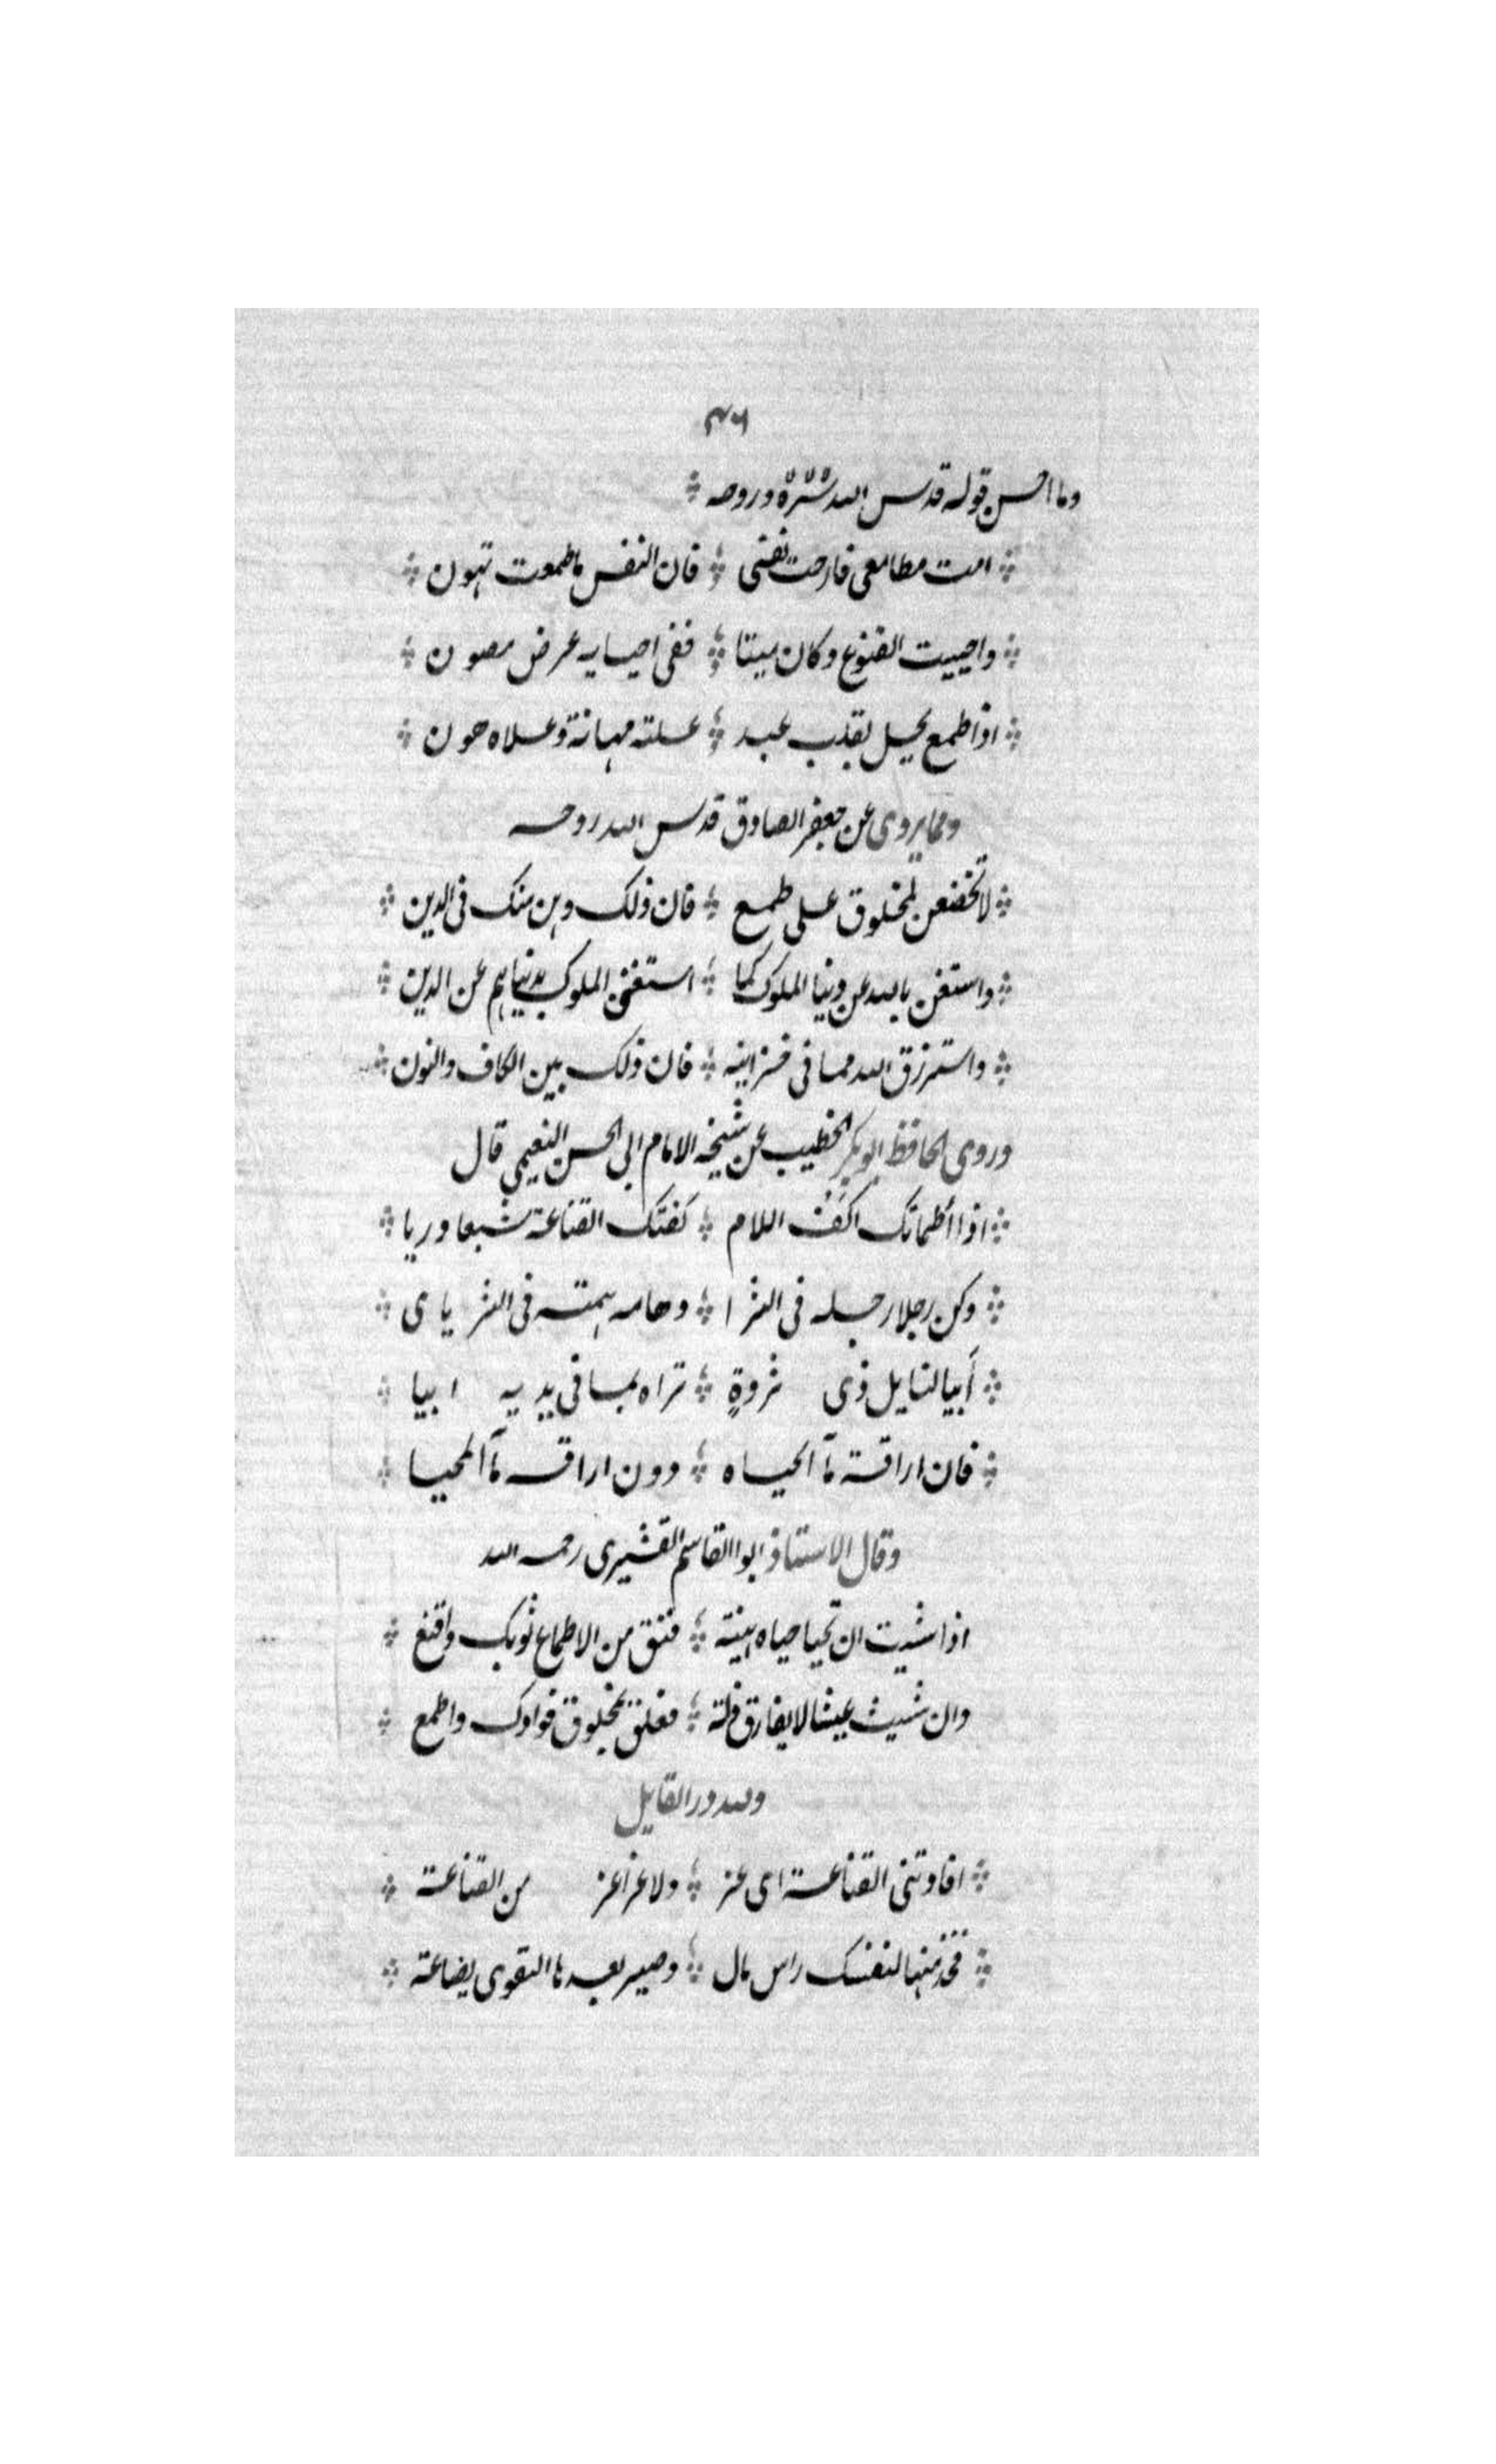 ٣٦١
وما احسن قوله قدس الله سره وروحه
امت مطامعي فارحت نفسي فان النفس ما طمعت تهون
واحييت القنوع وكان ميتا ففي احيايه عرض مصون
اذا طمع يحل بقلب عبد علته مهانة وعلاه هون
ومما يروى عن جعفر الصادق قدس الله روحه
لا تخضعن لمخلوق على طمع فان ذلك وهن منك في الدين
واستغن بالله عن دنيا الملوك كما استغنى الملوك بدنياهم عن الدين
واسترزق الله مما في خزاينه فان ذلك بين الكاف والنون
وروى الحافظ ابو بكر الخطيب عن شيخه الامام ابي الحسن النعيمي قال
اذا أظماتك اكف اللام كفتك القناعة شبعا وريا
وكن رجلا رجله في الثرا وهامه همته في الثريا ى
أبيا لنايل ذى ثروةٍ تراه بما في يديه ابيا
فان اراقة مآ الحياه دون اراقه مآ المحيا
وقال الاستاذ ابو القاسم القشيرى رحمه الله
اذا شيت ان تحيا حياه هنية فنق من الاطماع ثوبك واقنع
وان شيت عيشا لا يفارق ذلة فعلق بمخلوق فوادك واطمع
ولله در القايل
افادتني القناعة اى عز ولا عزا عز من القناعة
فخذ منها لنفسك راس مال وصير بعدها التقوى بضاعة